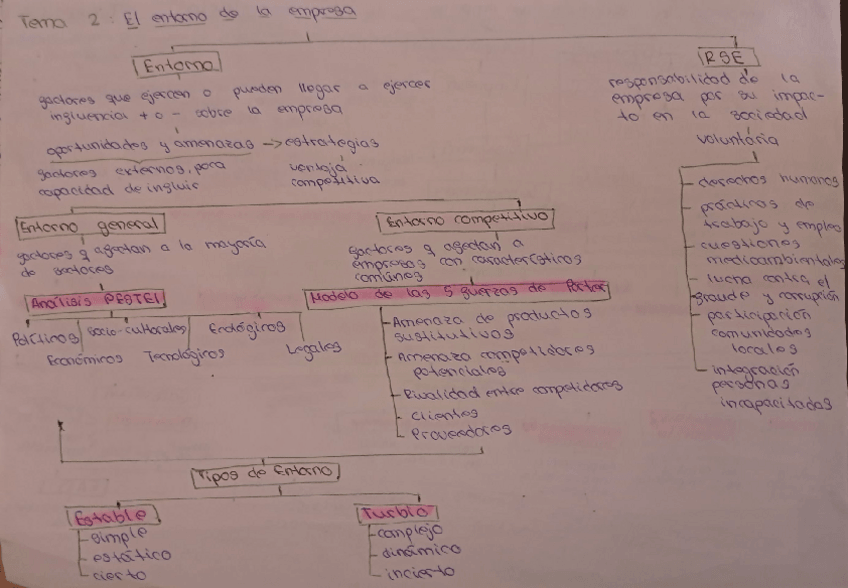 Tema 2: El entorno de la empresa
Entorno
factores que ejercen o pueden llegar a ejercer
influencia + o - sobre la empresa
oportunidades y amenazas -> estrategias
factores externos, para
capacidad de influir
ventaja
competitiva
RSE
responsabilidad de la
empresa por su impac-
to en la sociedad
voluntária
- derechos humanos
- prácticas de
trabajo y empleo
- cuestiones
medioambientales
- lucha contra el
fraude y corrupción
- participación
comunidades
locales
- integración
personas
incapacitadas
Entorno general
factores q afectan a la mayoría
de sectores
Análisis PESTEL
Políticos
Económicos
Socio-culturales
Tecnológicos
Ecológicos
Legales
Entorno competitivo
factores q afectan a
empresas con características
comunes
Modelo de las 5 fuerzas de Porter
- Amenaza de productos
sustitutivos
- Amenaza competidores
potenciales
- Rivalidad entre competidores
- Clientes
- Proveedores
Tipos de Entorno
Estable
- simple
- estático
- cierto
Turbio
- complejo
- dinámico
- incierto